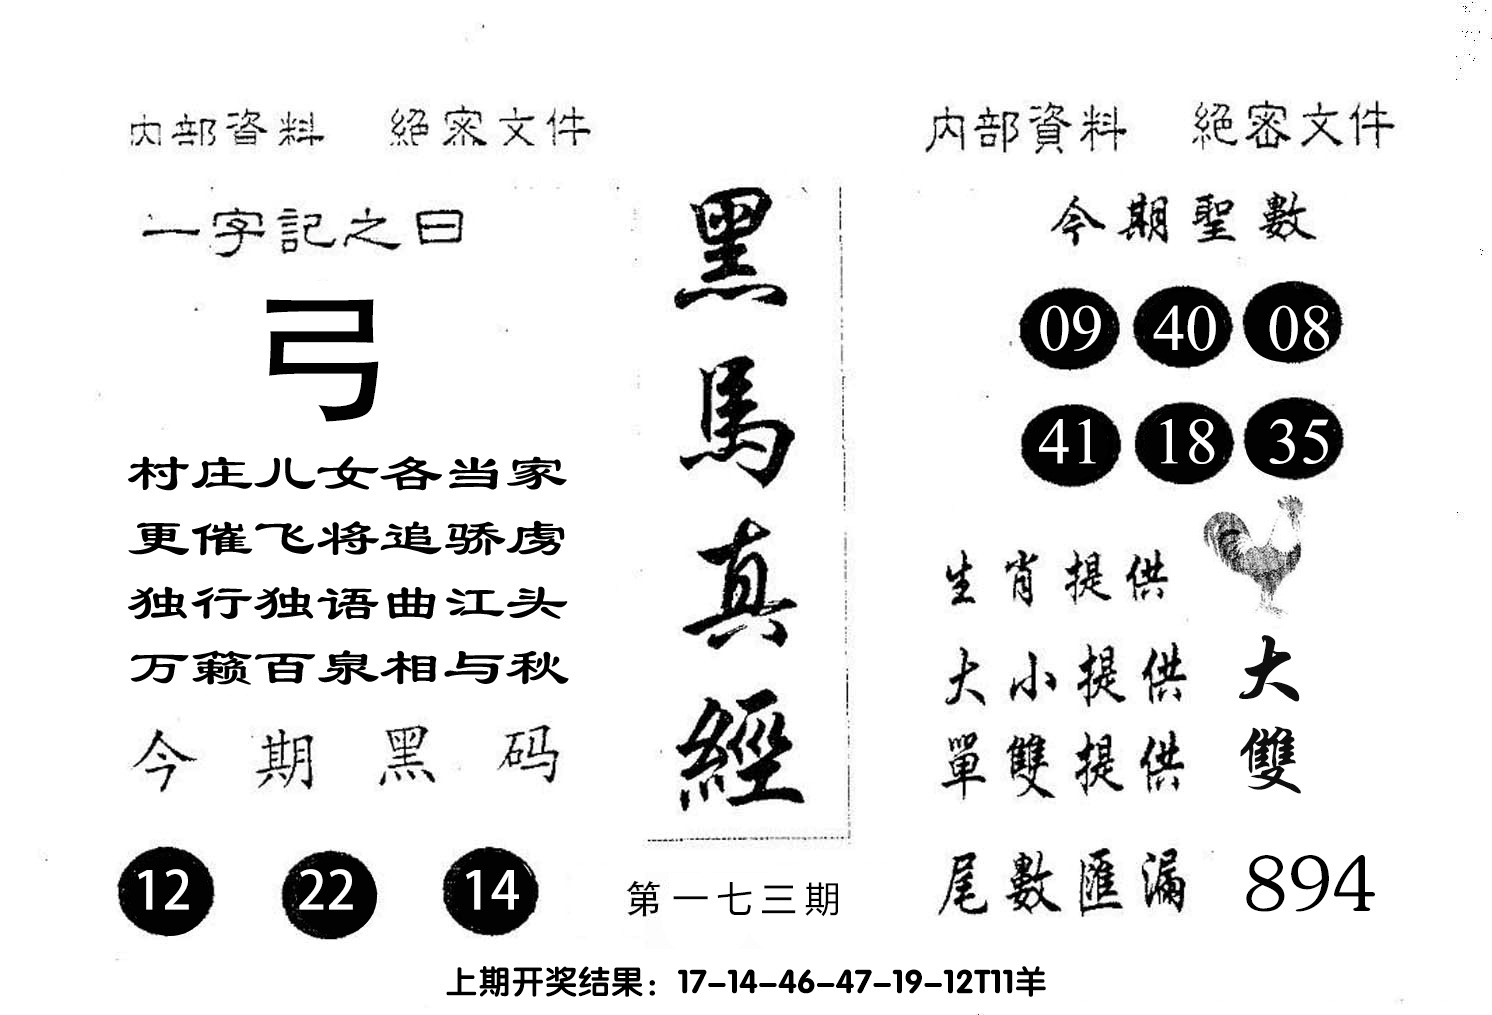 内部資料 絕密文件
一字記之曰
弓
村庄儿女各当家
更催飞将追骄虏
独行独语曲江头
万籁百泉相与秋
今期黑码
12 22 14
黑馬真經
第一七三期
内部資料 絕密文件
今期聖數
09 40 08
41 18 35
生肖提供
大小提供 大
單雙提供 雙
尾數匯漏 894
上期开奖结果：17-14-46-47-19-12T11羊